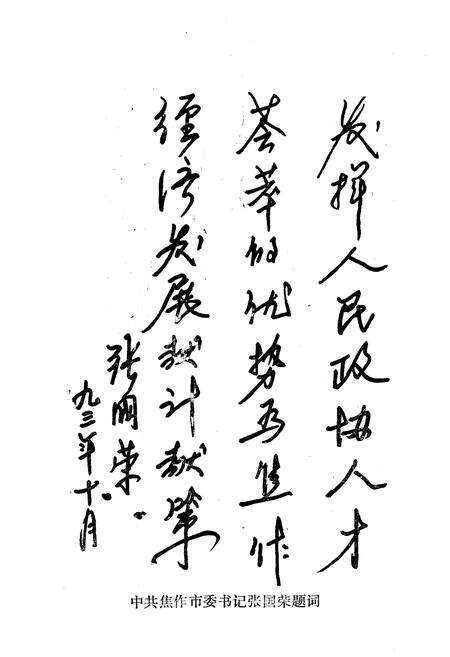 发挥人民政协人才
荟萃的优势为焦作
经济发展献计献策
张国荣
九三年十月
中共焦作市委书记张国荣题词